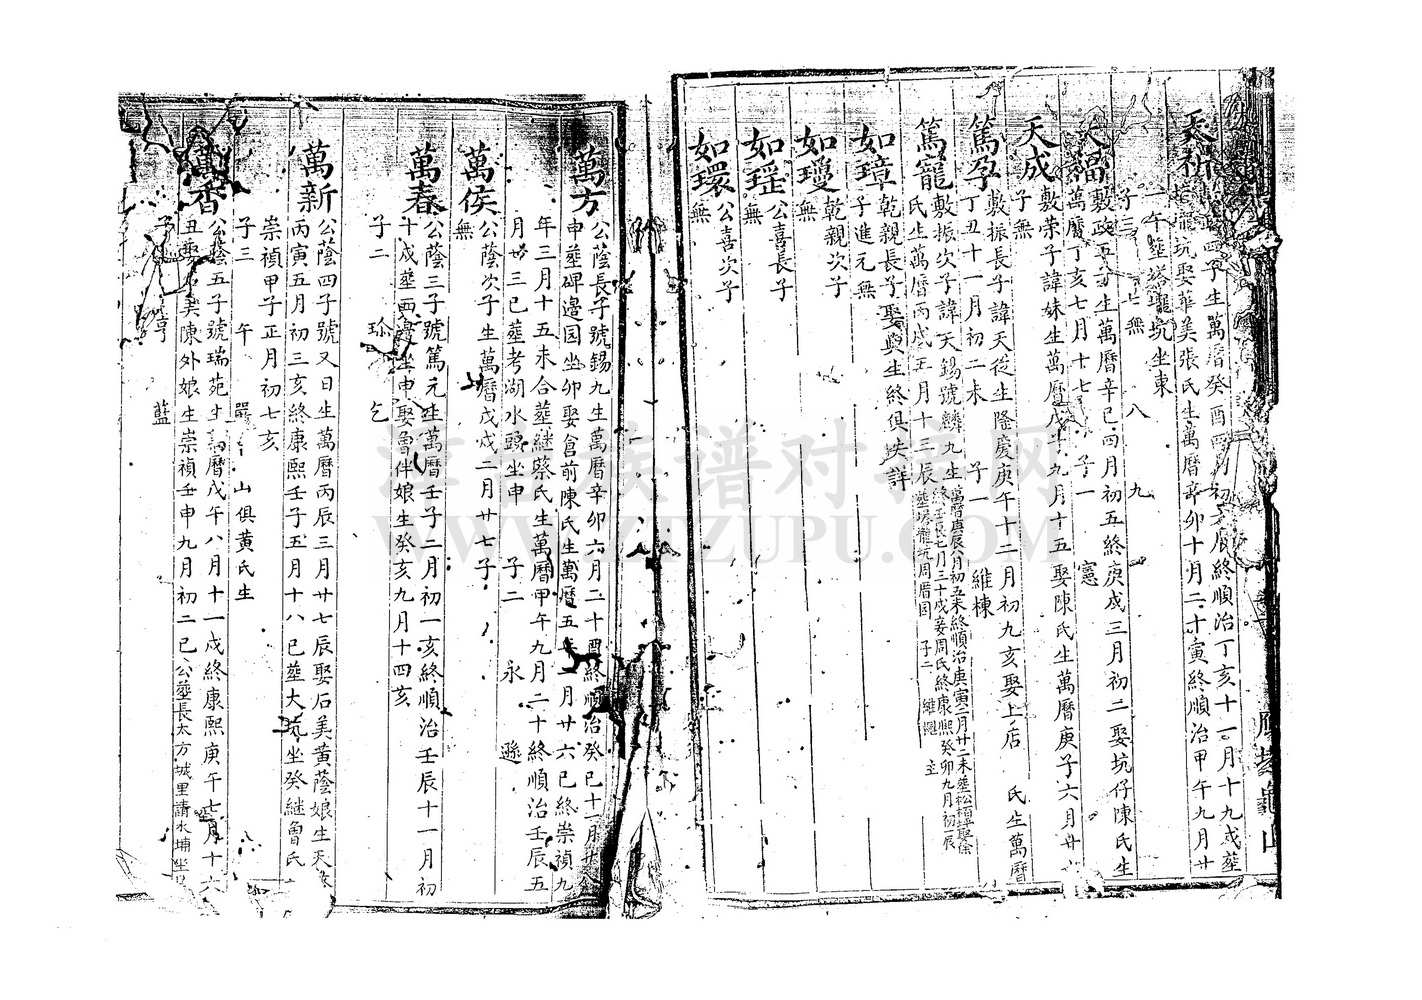 天祈
四子生萬曆癸酉四月初
辰終順治丁亥十一月十九戌塟
塔壠坑娶華美張氏生萬曆辛卯十月二十寅終順治甲午九月廿
一午塟塔壠坑坐東
子三 七無 八 九
天福
敷政五子生萬曆辛巳四月初五終庚戌三月初二娶坑仔陳氏生
萬曆丁亥七月十七 子一 憲
天成
敷榮子諱妹生萬曆戊子九月十五娶陳氏生萬曆庚子六月廿
子無
篤孕
敷振長子諱天從生隆慶庚午十二月初九亥娶上店 氏生萬曆
丁丑十一月初二未 子一 維棟
篤寵
敷振次子諱天錫號麟九生萬曆庚辰八月初五未終順治庚寅二月廿二未塟松栢
氏生萬曆丙戌五月十三辰終壬辰七月三十戌妾周氏終康熙癸卯九月初一辰
塟塔壠坑周厝园 子二 維
如璋
乾親長子娶與生終俱失詳
子進元無
如璦
乾親次子
無
如瑤
公喜長子
無
如環
公喜次子
無
萬方
公蔭長子號錫九生萬曆辛卯六月二十酉終順治癸巳十一月廿
申塟碑邊园坐卯娶倉前陳氏生萬曆五年二月廿六巳終崇禎九
年三月十五未合塟継蔡氏生萬曆甲午九月二十終順治壬辰五
月廿三巳塟考湖水頭坐申 子二 永 遜
萬侯
公蔭次子生萬曆戊戌二月廿七子
無
萬春
公蔭三子號篤元生萬曆壬子二月初一亥終順治壬辰十一月初
十戌塟西邊坐申娶魯伴娘生癸亥九月十四亥
子二 珍 乞
萬新
公蔭四子號又日生萬曆丙辰三月廿七辰娶石美黃蔭娘生天啟
丙寅五月初三亥終康熙壬子五月十八巳塟大坑坐癸継魯氏
崇禎甲子正月初七亥
子三 午 山俱黃氏生 八
萬香
公蔭五子號瑞苑生萬曆戊午八月十一戌終康熙庚午七月十六
丑娶石美陳外娘生崇禎壬申九月初二巳公塟長太方城里請水埔坐
子 亨 藍